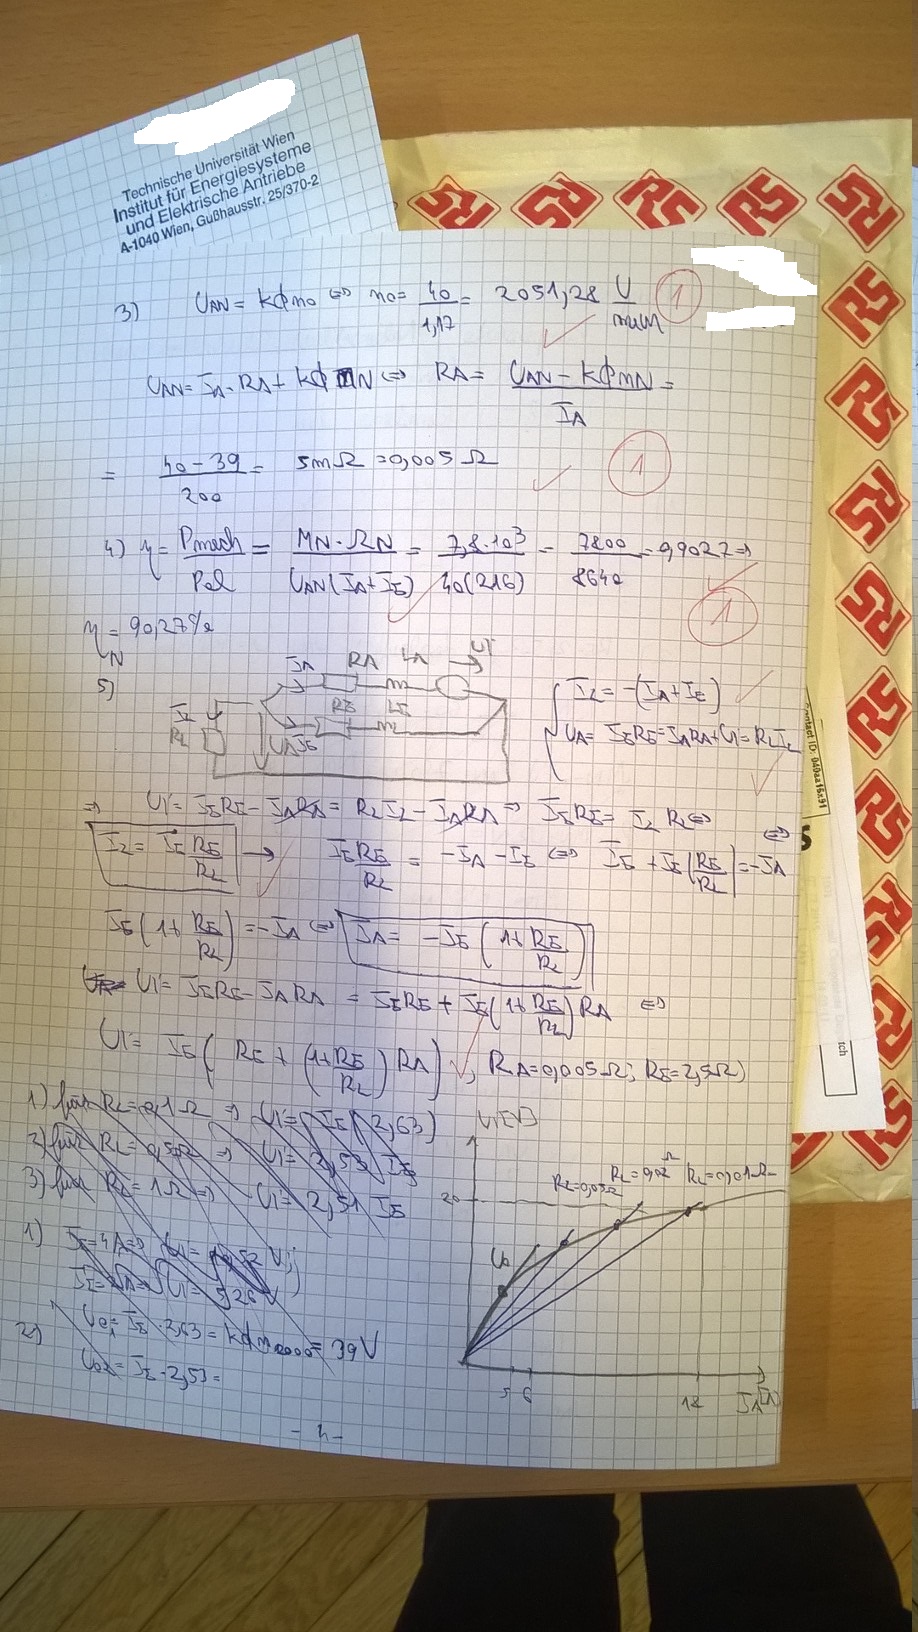 Technische Universität Wien
Institut für Energiesysteme
und Elektrische Antriebe
A-1040 Wien, Gußhausstr. 25/370-2
RS
3) UAN = kϕn0 ⇔ n0 = 40/1,17 = 2051,28 U/min 1
UAN = IA·RA + kϕnN ⇔ RA = (UAN - kϕnN)/IA =
= (40 - 39)/200 = 5mΩ = 0,005 Ω 1
4) η = Pmech/Pel = MN·ΩN/UAN(IA+IE) = 7,8·10³/40(216) = 7800/8640 = 0,9027 ⇒ 1
ηN = 90,27%
5)
IA RA LA Ui
IL RE LE
RL UA IE
IL = -(IA + IE)
UA = IERE = IARA + Ui = RLIL
⇒ Ui = IERE - IARA = RLIL - IARA ⇒ IERE = IL RL ⇔
IL = IE RE/RL → IERE/RL = -IA - IE ⇔ IE + IE(RE/RL) = -IA ⇔
IE(1+RE/RL) = -IA ⇔ IA = -IE(1+RE/RL)
Ui = IERE - IARA = IERE + IE(1+RE/RL)RA ⇔
Ui = IE(RE + (1+RE/RL)RA), RA=0,005Ω; RE=2,5Ω)
1) für RL=0,1Ω ⇒ Ui = IE(2,63)
2) für RL=0,5Ω ⇒ Ui = 2,53 IE
3) für RL=1Ω ⇒ Ui = 2,51 IE
1) IE=4A ⇒
5,26 V
2) IE·2,63 = kϕn2000 = 39V
U02 = IE·2,53 =
20
RL=0,02Ω RL=0,01Ω
5 6 12
- 4 -
Contact ID: 040aaf5x91
tch